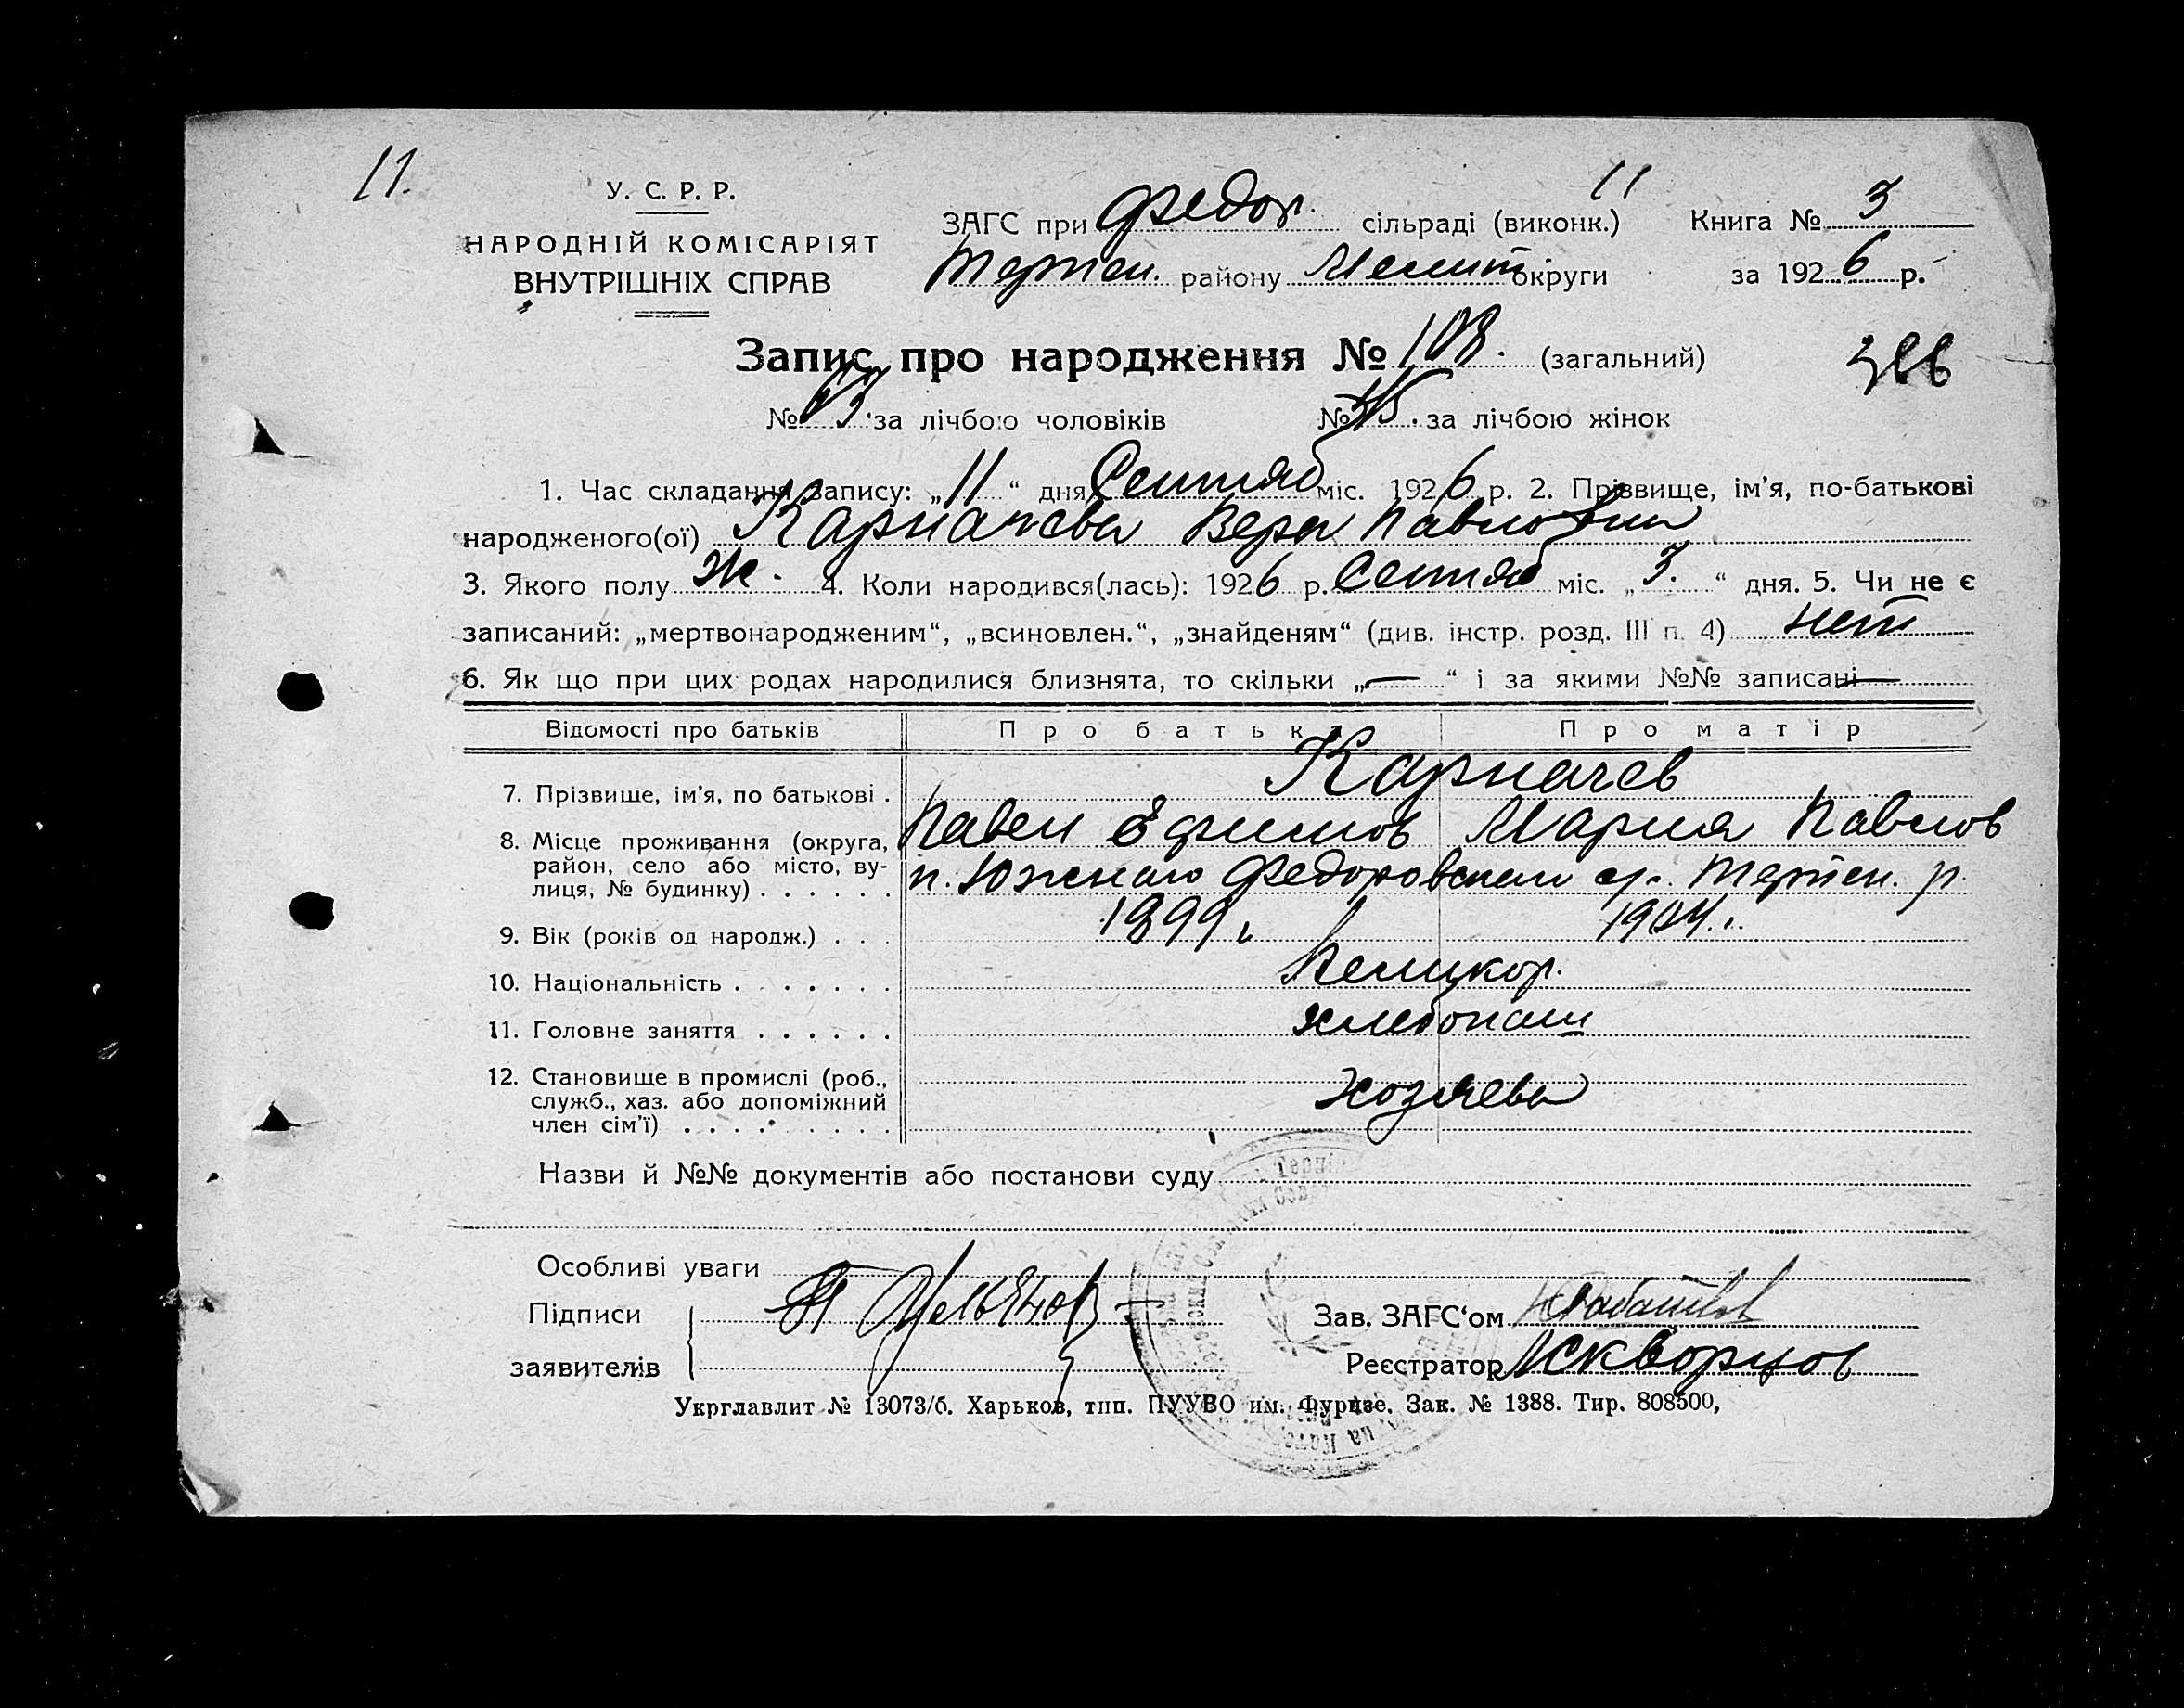 11.
У. С. Р. Р.
НАРОДНІЙ КОМІСАРІЯТ
ВНУТРІШНІХ СПРАВ
11
ЗАГС при Федор. сільраді (виконк.) Книга № 3
Терпен. району Мелит округи за 1926 р.
Запис про народження № 108. (загальний)
№ 63. за лічбою чоловіків № 45. за лічбою жінок
1. Час складання запису: „11“ дня Сентяб міс. 1926 р. 2. Прізвище, ім'я, по-батькові
народженого(ої) Карначева Вера Павловна
3. Якого полу Ж. 4. Коли народився(лась): 1926 р. Сентяб міс. „3.“ дня. 5. Чи не є
записаний: „мертвонародженим“, „всиновлен.“, „знайденям“ (див. інстр. розд. III п. 4) нет
6. Як що при цих родах народилися близнята, то скільки „—“ і за якими №№ записані —
Відомості про батьків Про батька Про матір
7. Прізвище, ім'я, по батькові . Карначев
Павел Ефимов Мария Павлов
8. Місце проживання (округа,
район, село або місто, ву-
лиця, № будинку) . . . . . . п. Южного Федоровскаго с/. Терпен. р.
9. Вік (років од народж.) . . . 1899 г. 1904 г.
10. Національність . . . . . . . Великор.
11. Головне заняття . . . . . . хлебопаш
12. Становище в промислі (роб.,
служб., хаз. або допоміжний
член сім'ї) . . . . . . . . . хозяева
Назви й №№ документів або постанови суду
Особливі уваги
Підписи
заявителів
Зав. ЗАГС‘ом
Реєстратор Скворцов
Укрглавлит № 13073/б. Харьков, тип. ПУУВО им. Фрунзе. Зак. № 1388. Тир. 808500,